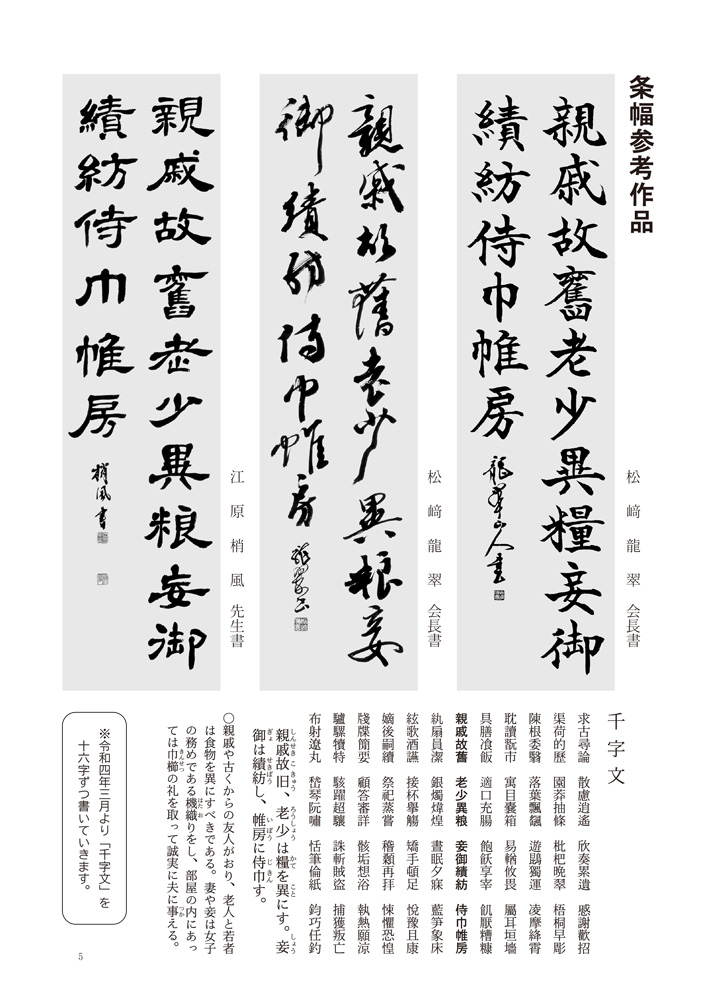 条幅参考作品
松﨑龍翠 会長書
親戚故舊老少異糧妾御
績紡侍巾帷房 龍翠山人書
松﨑龍翠 会長書
親戚故舊老少異粮妾
御績紡侍巾帷房
江原梢風 先生書
親戚故舊老少異粮妾御
績紡侍巾帷房 梢風書
千字文
求古尋論 散慮逍遙 欣奏累遣 慼謝歡招
渠荷的歷 園莽抽條 枇杷晩翠 梧桐早彫
陳根委翳 落葉飄颻 遊鵾獨運 凌摩絳霄
耽讀翫市 寓目囊箱 易輶攸畏 屬耳垣墻
具膳飡飯 適口充腸 飽飫享宰 飢厭糟糠
親戚故舊 老少異粮 妾御績紡 侍巾帷房
紈扇員潔 銀燭煒煌 晝眠夕寐 藍笋象床
絃歌酒讌 接杯擧觴 矯手頓足 悅豫且康
嫡後嗣續 祭祀蒸嘗 稽顙再拝 悚懼恐惶
牋牒簡要 顧答審詳 骸垢想浴 執熱願涼
驢騾犢特 駭躍超驤 誅斬賊盜 捕獲叛亡
布射遼丸 嵆琴阮嘯 恬筆倫紙 鈞巧任釣
親戚故旧、老少は糧を異にす。妾
御は績紡し、帷房に侍巾す。
しんせきこきゅう ろうしょう かて こと しょう
ぎょ せきぼう いぼう じきん
〇親戚や古くからの友人がおり、老人と若者
は食物を異にすべきである。妻や妾は女子
の務めである機織りをし、部屋の内にあっ
ては巾櫛の礼を取って誠実に夫に事える。
はたお
きんせつ つか
※令和四年三月より「千字文」を
十六字ずつ書いていきます。
5